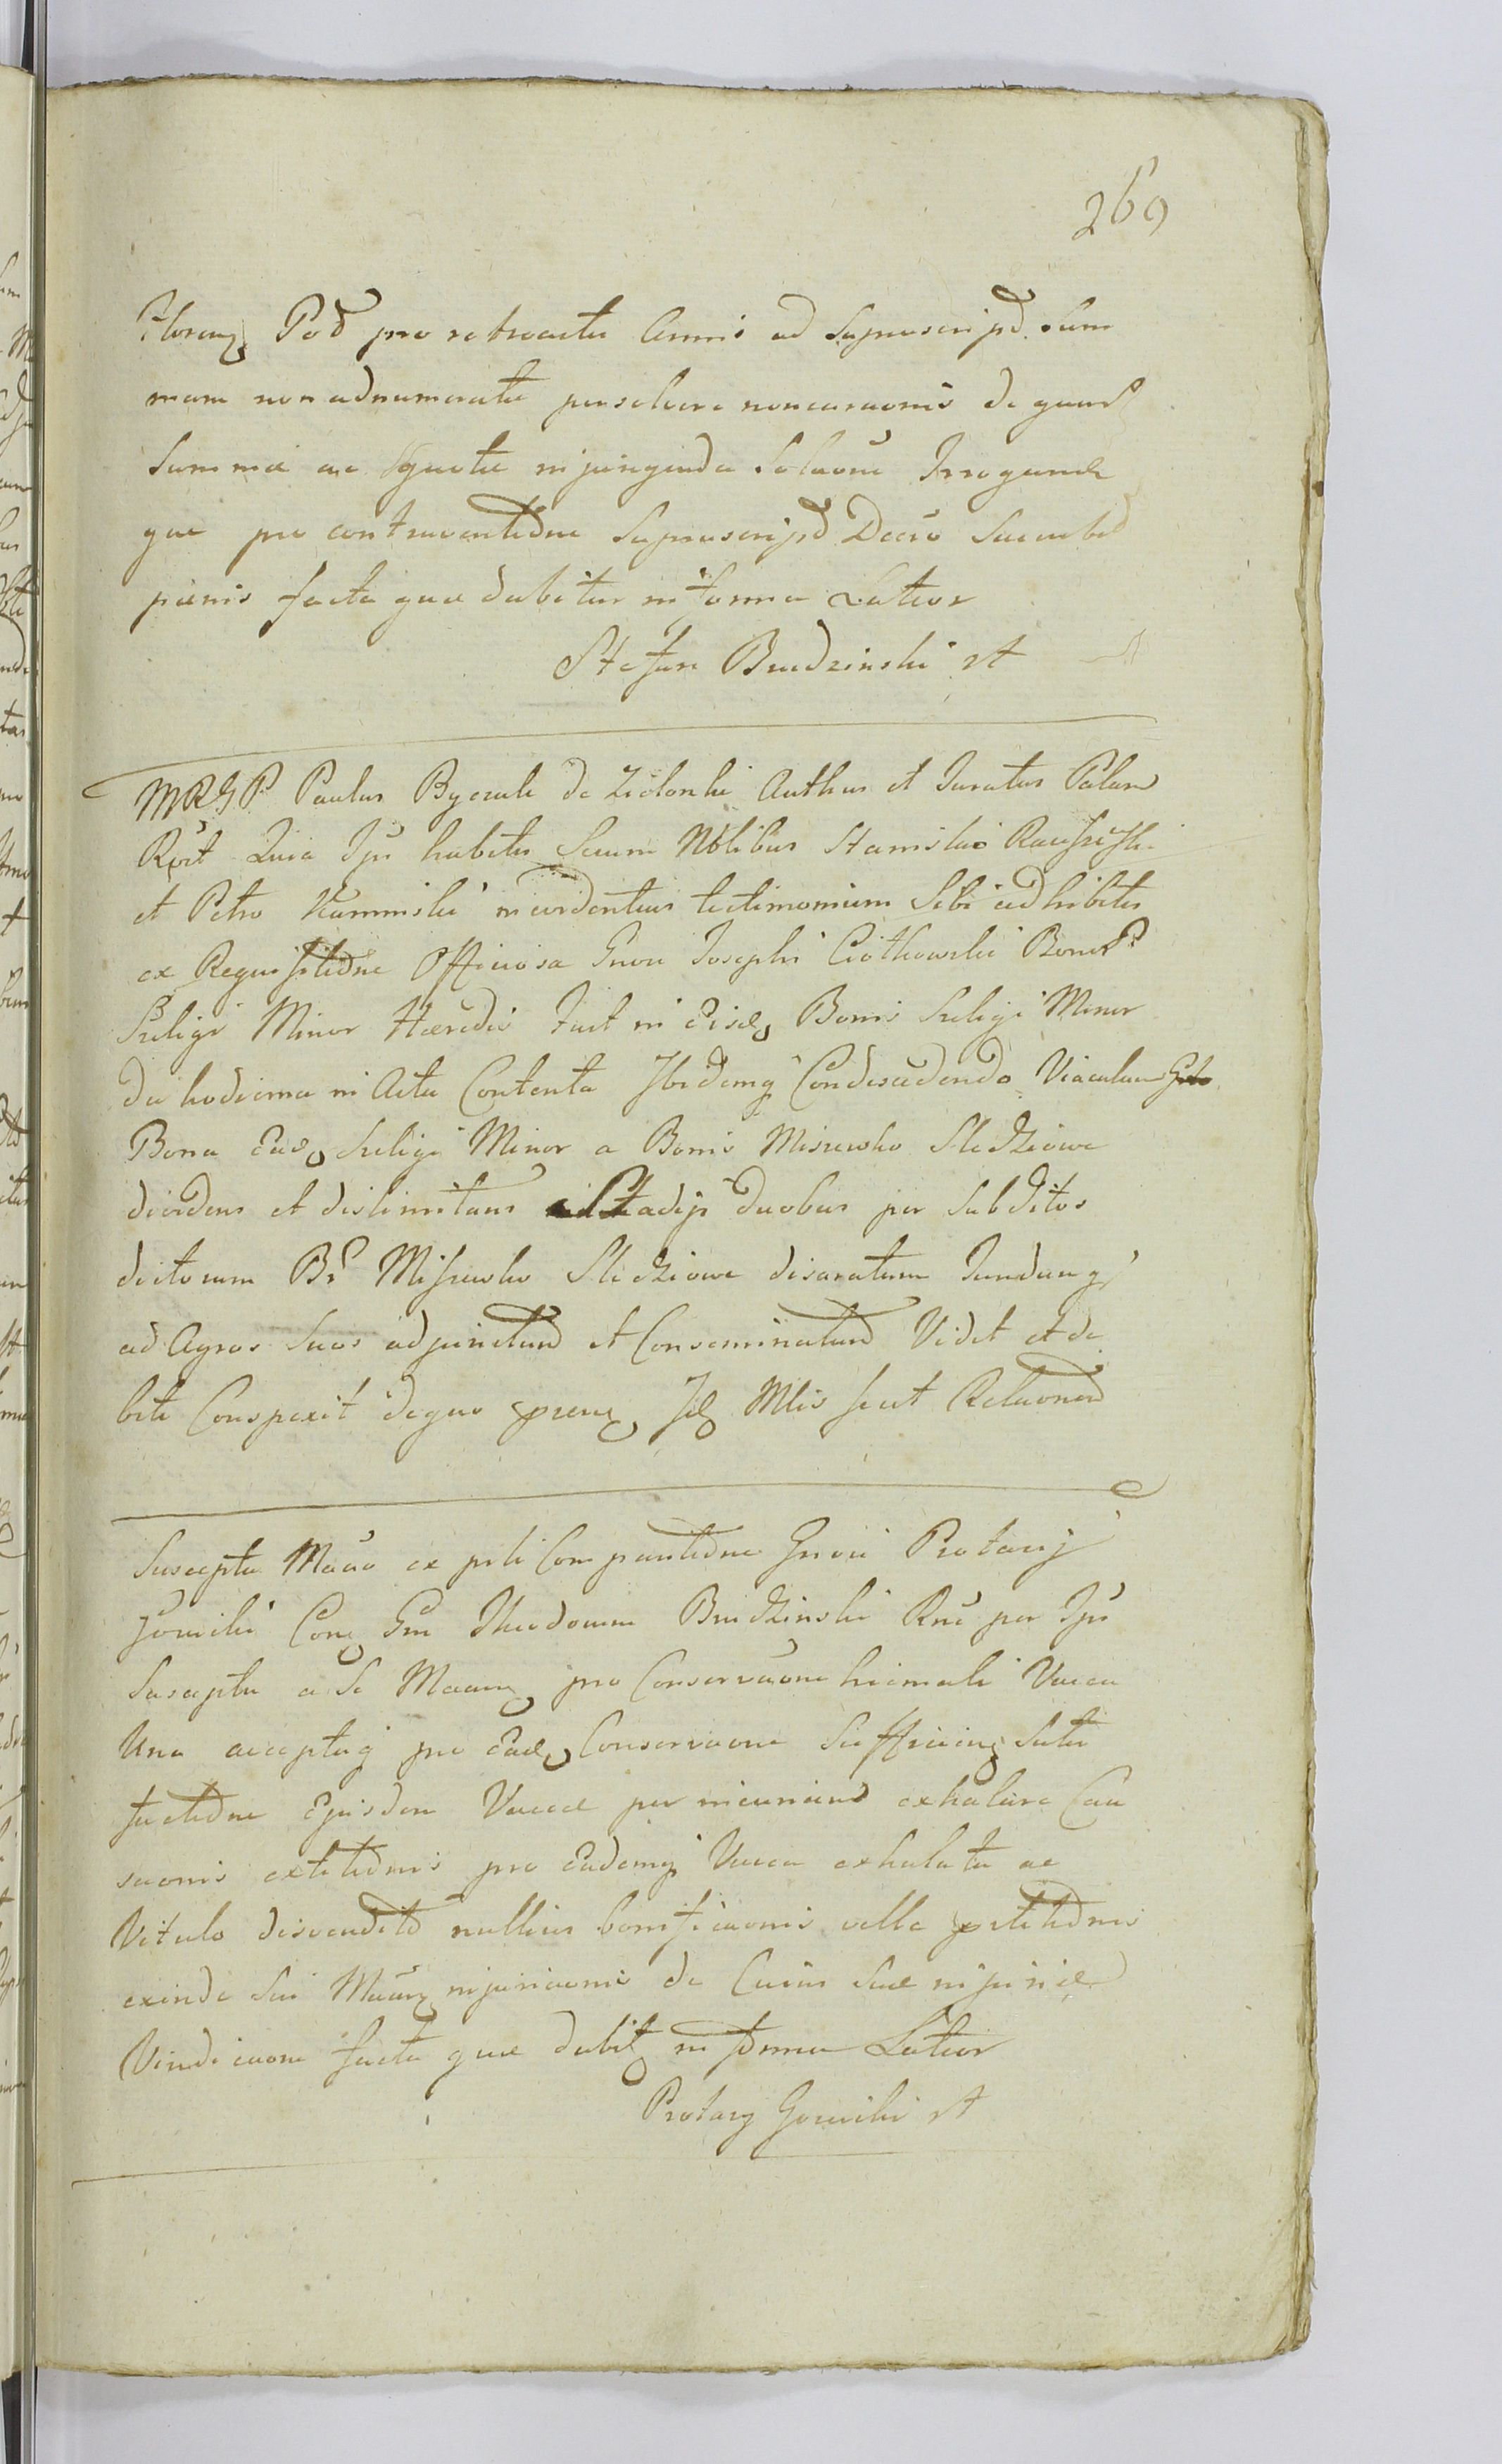 269
Florenq Pod pro retroacta Annis ad Suprascripd. Sum
mam non adnumerata persolvere noncuraonis de quarsd
Summae ac quota injungenda Soluone Irrogand
que pro contraventidne Suprascripd Decro Succubd
poenis facta quae dabitur in forma Latior
Stefan Brudzinski rt
MRGP Paulus Byczek de Zielonki Authus et Juratus Palam
Rcrt Quia Ips habitis Secum Nblibus Stanislao
et Petro Kaminski in evidentius testimonium Sibi adhibitis
ex Requisitidne Officiosa Gnosi Josephi Ciotkowski Bonor
Szeligi Minor Haeredis fuit in Eisdq Bonis Szeligi Minor
die hodierna in Actu Contenta Ibidemq Condescedendo Viaculum
Bona Eadq Szeligi Minor a Bonis Miszewko Sledziowe
dividens et dislimitans Stadijs duobus per Subditos
dictorum Br Miszewko Sledziowe disaratum Fundumq
ad Agros Suos adjunctum et Conseminatum Vidit et de
bite Conspexit de quo prenq Idq Mlis fecit Relaonem
Suscepta Macao ex prli Comparitidne Gnosi Protazij
Gorecki Conq Gm Theodorum Brudzinski Rne per Ips
Suscepta a Se Macanq pro Conservaone hiemali Vacca
Una acceptaq pro Eadq Conservaone Sufficienq Satis
factidne Ejusdem Vaccae per incuriam exhalare Cau
saonis extitidnis pro Eademq Vacca exhalata ac
Vitulo disvendito nullius bonificaonis velle pstitidnis
exinde Sui Macanq injuriaonis de Cuius Suae injuriae
Vindicaone facta quae dabitq in forma Latior
Protazy Gorecki rt